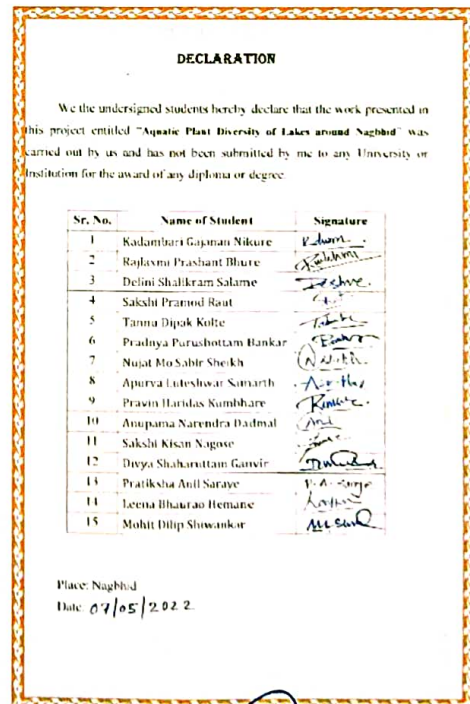 DECLARATION
We the undersigned students hereby declare that the work presented in
this project entitled "Aquatic Plant Diversity of Lakes around Nagbhid" was
carried out by us and has not been submitted by me to any University or
Institution for the award of any diploma or degree.
Sr. No. Name of Student Signature
1 Kadambari Gajanan Nikure
2 Rajlaxmi Prashant Bhure
3 Delini Shalikram Salame
4 Sakshi Pramod Raut
5 Tannu Dipak Kolte
6 Pradnya Purushottam Bankar
7 Nujat Mo Sabir Sheikh
8 Apurva Luteshwar Samarth
9 Pravin Haridas Kumbhare
10 Anupama Narendra Dadmal
11 Sakshi Kisan Nagose
12 Divya Shaharuttam Ganvir
13 Pratiksha Anil Saraye
14 Leena Bhaurao Hemane
15 Mohit Dilip Shiwankar
Place: Nagbhid
Date: 07/05/2022